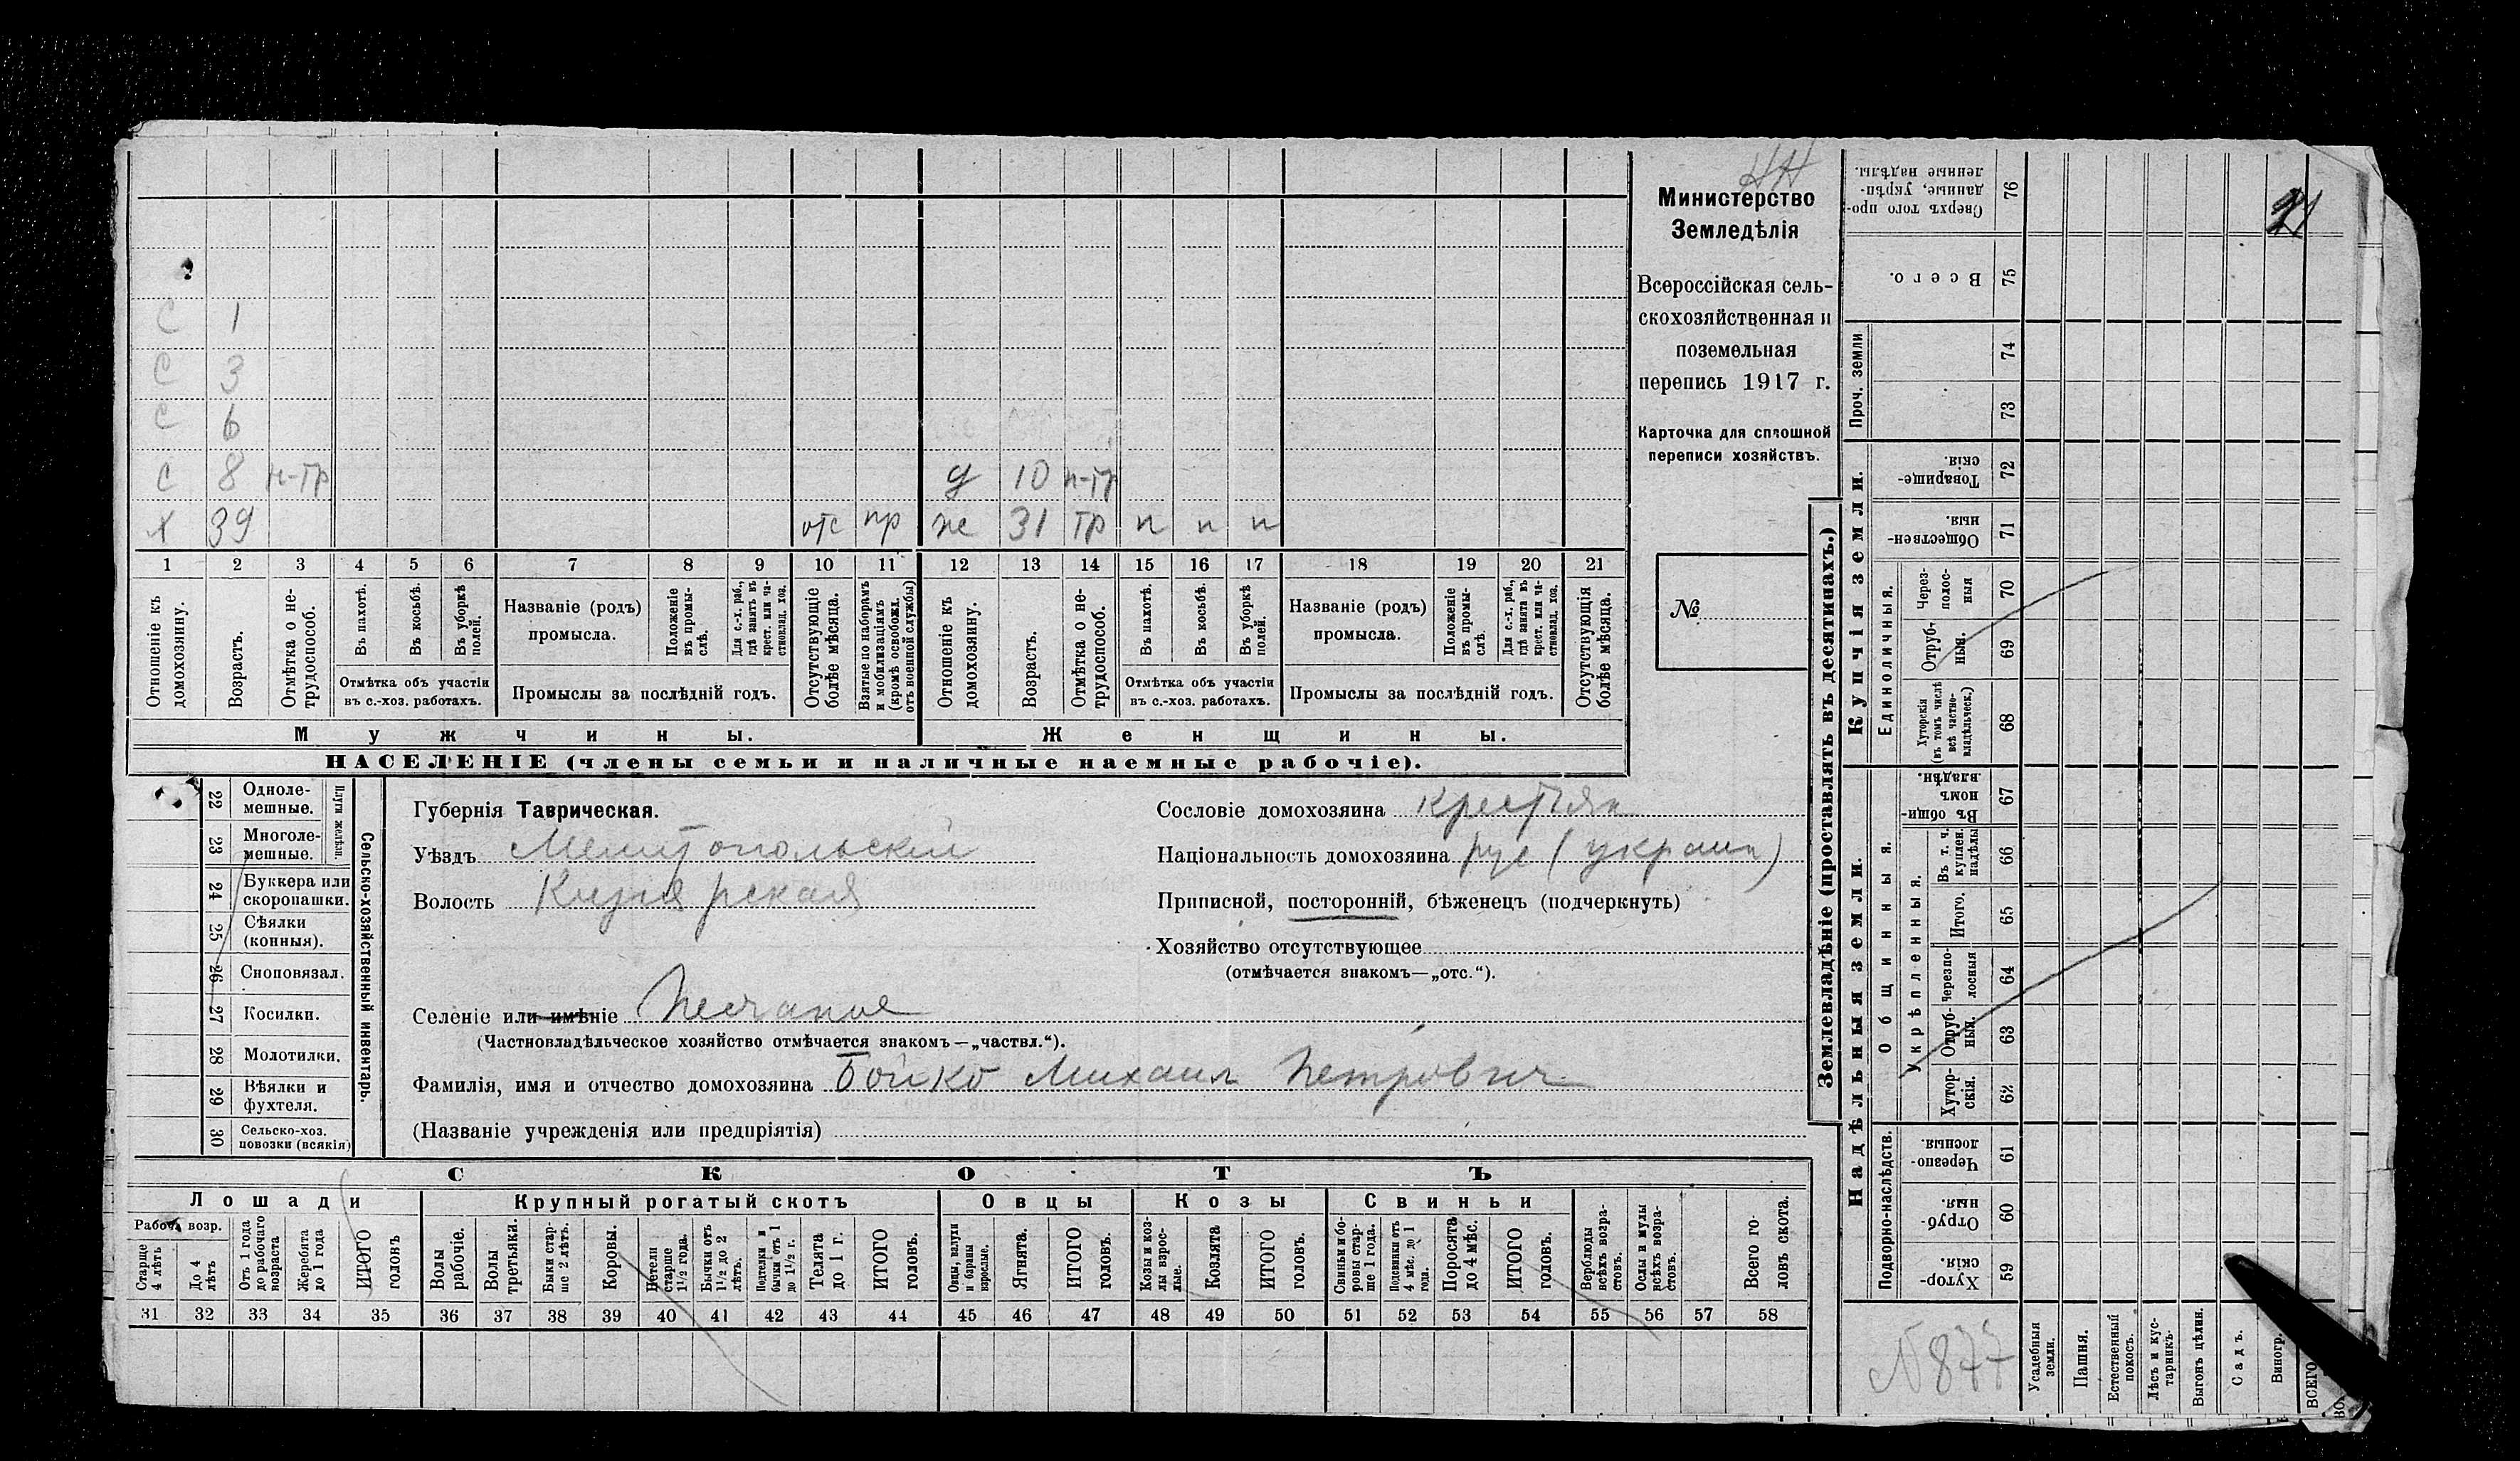 НН
Министерство
Земледѣлія
Всероссійская сель-
скохозяйственная и
поземельная
перепись 1917 г.
Карточка для сплошной
переписи хозяйствъ.
№
21
С 1
С 3
С 6
С 8 н-тр д 10 п-тр
х 39 отс пр же 31 тр п п п
1 2 3 4 5 6 7 8 9 10 11 12 13 14 15 16 17 18 19 20 21
Отношеніе къ домохозяину.
Возрастъ.
Отмѣтка о не-трудоспособ.
Въ пахотѣ.
Въ косьбѣ.
Въ уборкѣ полей.
Отмѣтка объ участіи
въ с.-хоз. работахъ.
Названіе (родъ)
промысла.
Положеніе въ промы-слѣ.
Для с.-х. раб., гдѣ занятъ въ крест. или ча-стновлад. хоз.
Промыслы за послѣдній годъ.
Отсутствующіе болѣе мѣсяца.
Взятые по наборамъ и мобилизаціямъ (кромѣ освобожд. отъ военной службы)
Отношеніе къ домохозяину.
Возрастъ.
Отмѣтка о не-трудоспособ.
Въ пахотѣ.
Въ косьбѣ.
Въ уборкѣ полей.
Отмѣтка объ участіи
въ с.-хоз. работахъ.
Названіе (родъ)
промысла.
Положеніе въ промы-слѣ.
Для с.-х. раб., гдѣ занята въ крест. или ча-стновлад. хоз.
Промыслы за послѣдній годъ.
Отсутствующія болѣе мѣсяца.
Мужчины. Женщины.
НАСЕЛЕНІЕ (члены семьи и наличные наемные рабочіе).
22 Одноле-мешные.
23 Многоле-мешные.
Плуги желѣзн.
24 Буккера или скоропашки.
25 Сѣялки (конныя).
26 Сноповязал.
27 Косилки.
28 Молотилки.
29 Вѣялки и фухтеля.
30 Сельско-хоз. повозки (всякія)
Сельско-хозяйственный инвентарь.
Губернія Таврическая.
Уѣздъ Мелитопольскій
Волость Кизіярская
Селеніе или имѣніе Песчаное
(Частновладѣльческое хозяйство отмѣчается знакомъ—„частвл.“).
Фамилія, имя и отчество домохозяина Бойко Михаил Петрович
(Названіе учрежденія или предпріятія)
Сословіе домохозяина крестьян
Національность домохозяина рус (украин)
Приписной, посторонній, бѣженецъ (подчеркнуть)
Хозяйство отсутствующее
(отмѣчается знакомъ—„отс.“).
СКОТЪ
Лошади Крупный рогатый скотъ Овцы Козы Свиньи
Рабоч. возр.
Старше 4 лѣтъ
До 4 лѣтъ
Отъ 1 года до рабочаго возраста
Жеребята до 1 года
ИТОГО головъ
Волы рабочіе.
Волы третьяки.
Быки стар-ше 2 лѣтъ.
Коровы.
Нетели старше 1½ года.
Бычки отъ 1½ до 2 лѣтъ.
Подтелки и бычки отъ 1 до 1½ г.
Телята до 1 г.
ИТОГО головъ.
Овцы, валухи и бараны взрослые.
Ягнята.
ИТОГО головъ.
Козы и коз-лы взрос-лые.
Козлята
ИТОГО головъ.
Свиньи и бо-ровы стар-ше 1 года.
Подсвинки отъ 4 мѣс. до 1 года.
Поросята до 4 мѣс.
ИТОГО головъ.
Верблюды всѣхъ возра-стовъ.
Ослы и мулы всѣхъ возра-стовъ.
Всего го-ловъ скота.
31 32 33 34 35 36 37 38 39 40 41 42 43 44 45 46 47 48 49 50 51 52 53 54 55 56 57 58
Землевладѣніе (проставлять въ десятинахъ.)
Купчія земли.
Надѣльныя земли.
76 Сверхъ того про-данные, укрѣп-ленные надѣлы.
75 Всего.
Проч. земли
74
73
72 Товарище-скія.
71 Обществен-ныя.
Единоличныя.
70 Через-полос-ныя
69 Отруб-ныя.
68 Хуторскія (въ томъ числѣ всѣ частно-владѣльческ.)
Общинныя.
67 Въ общи-номъ владѣн.
Укрѣпленныя.
66 Въ т. ч. куплен. надѣлы
65 Итого.
64 Черезпо-лосныя
63 Отруб-ныя.
62 Хутор-скія.
Подворно-наслѣдств.
61 Черезпо-лосныя.
60 Отруб-ныя.
59 Хутор-скія.
Усадебныя земли.
Пашня.
Естественный покосъ.
Лѣсъ и кус-тарникъ.
Выгонъ цѣлин.
Садъ.
Виногр.
ВСЕГО